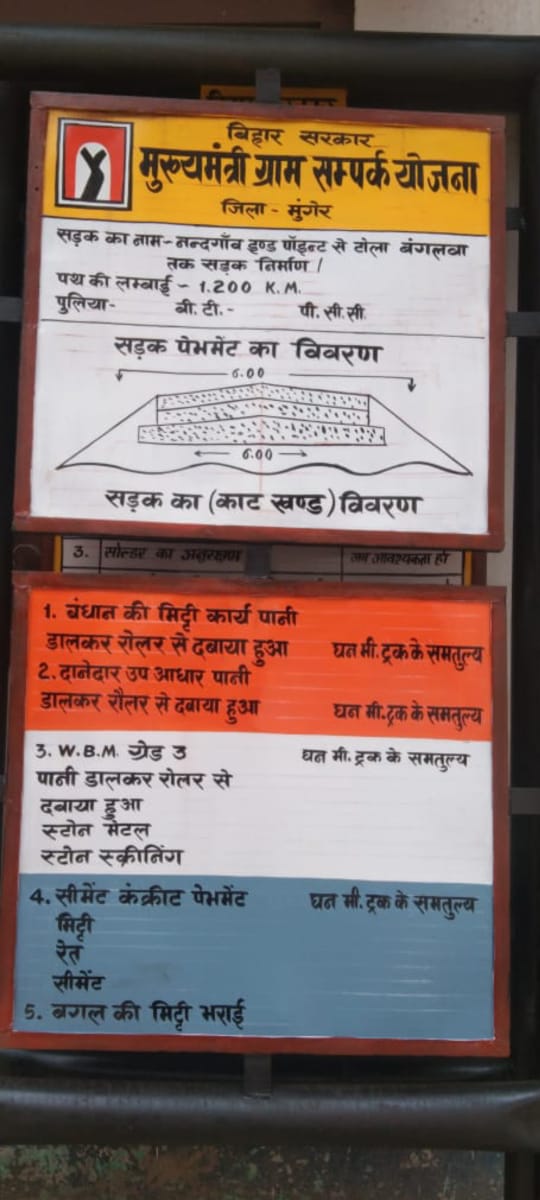 बिहार सरकार
मुख्यमंत्री ग्राम सम्पर्क योजना
जिला - मुंगेर
सड़क का नाम - नन्दगाँव इण्ड पॉइन्ट से टोला बंगलवा
तक सड़क निर्माण /
पथ की लम्बाई - 1.200 K.M.
पुलिया- बी. टी. - पी. सी. सी.
सड़क पेभमेंट का विवरण
6.00
6.00
सड़क का (काट खण्ड) विवरण
3. सोल्डर का अनुरक्षण
1. बंधान की मिट्टी कार्य पानी
डालकर रोलर से दबाया हुआ घन मी. ट्रक के समतुल्य
2. दानेदार उप आधार पानी
डालकर रौलर से दबाया हुआ घन मी. ट्रक के समतुल्य
3. W.B.M. ग्रेड 3 घन मी. ट्रक के समतुल्य
पानी डालकर रोलर से
दबाया हुआ
स्टोन मेटल
स्टोन स्क्रीनिंग
4. सीमेंट कंक्रीट पेभमेंट घन मी. ट्रक के समतुल्य
मिट्टी
रेत
सीमेंट
5. बगल की मिट्टी भराई